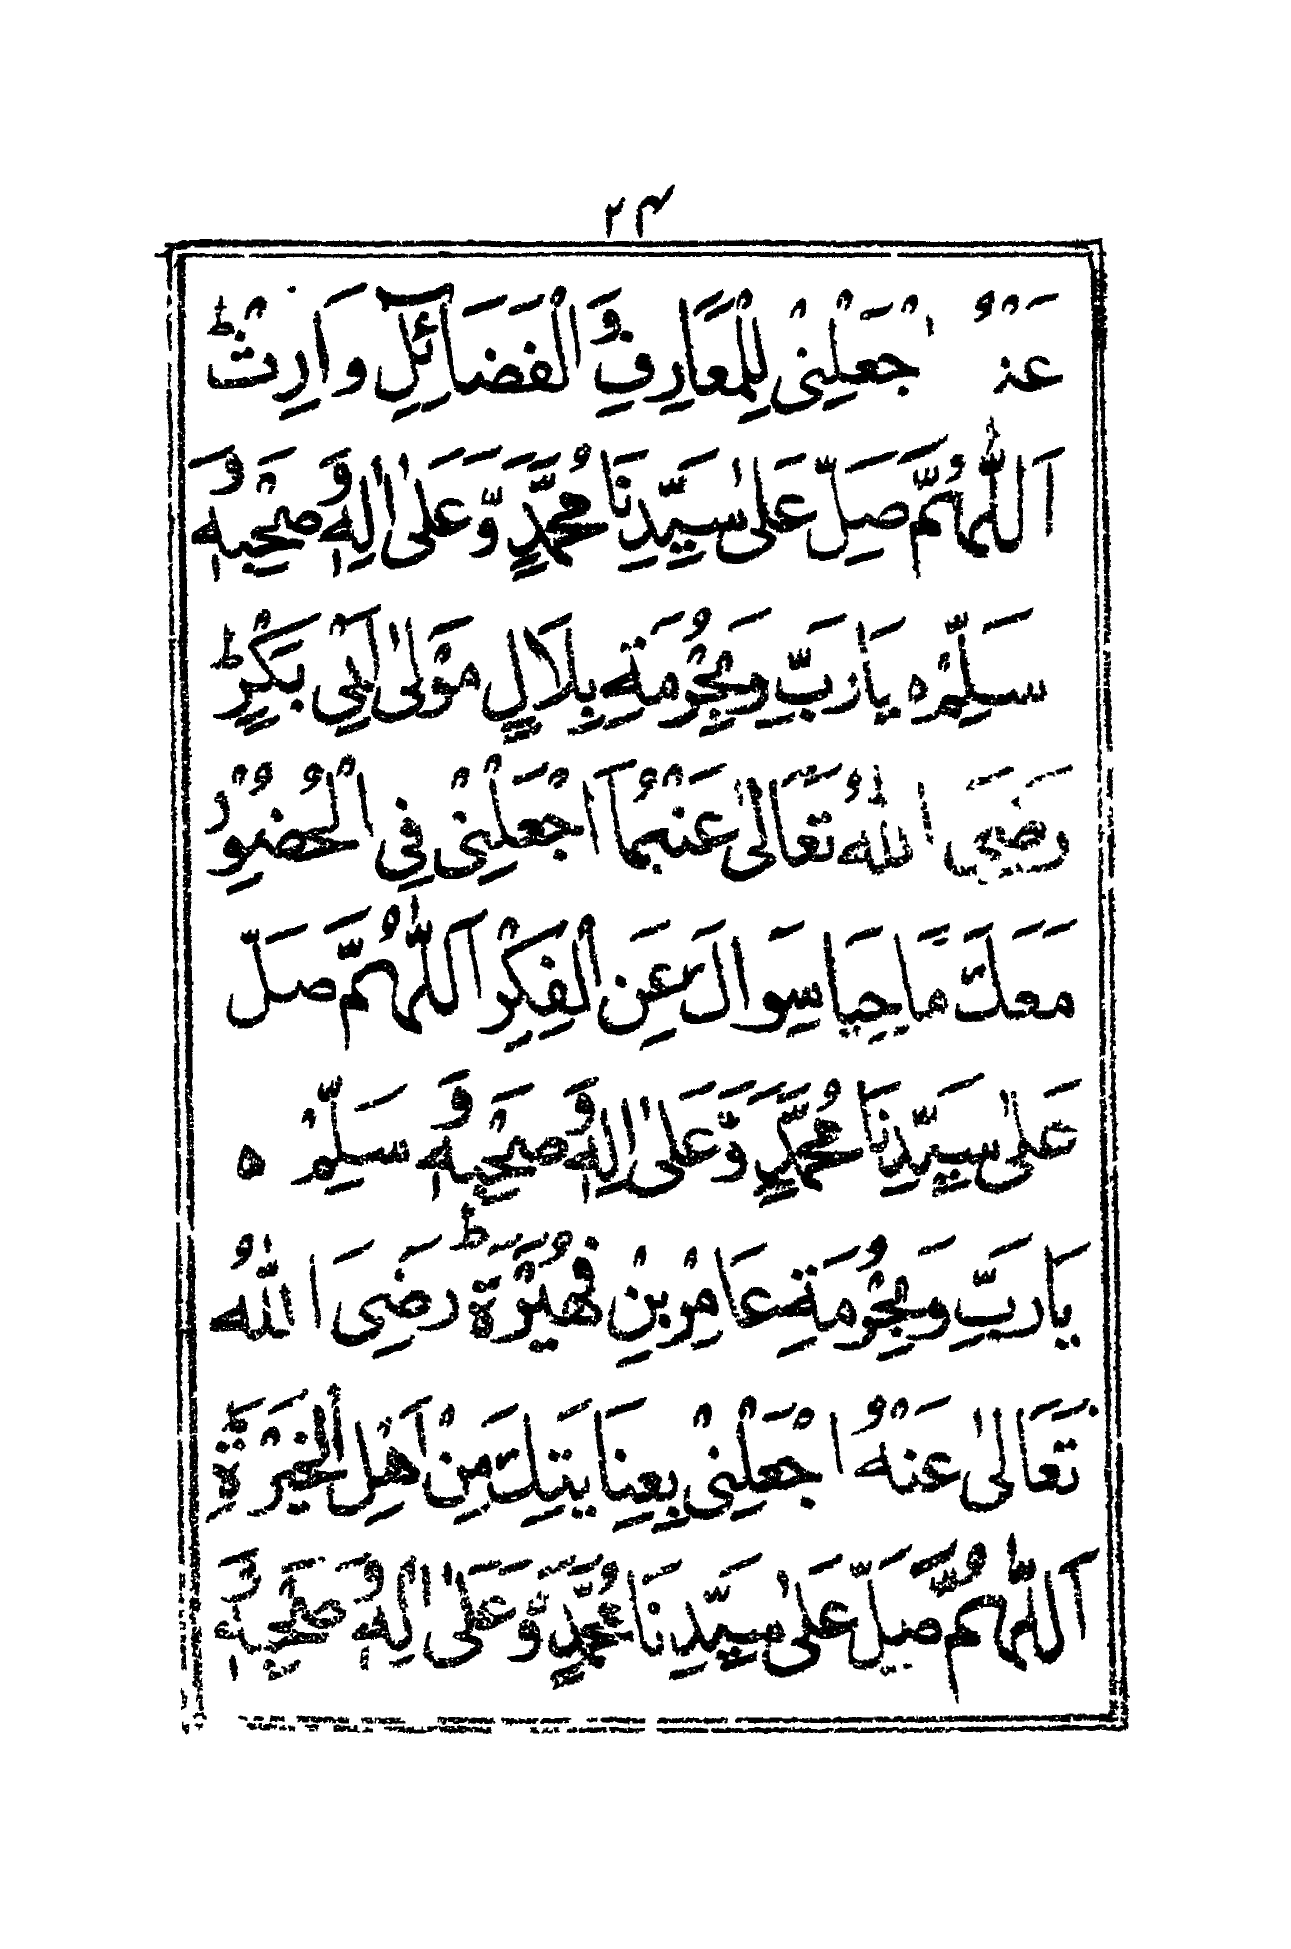 ۲۴
عَنْهُ اجْعَلْنِيْ لِلْمَعَارِفِ وَالْفَضَآئِلِ وَارِثْ ط
اَللّٰهُمَّ صَلِّ عَلٰى سَيِّدِنَا مُحَمَّدٍ وَّعَلٰى اٰلِهٖ وَصَحْبِهٖ وَ
سَلِّمْ ه يَارَبِّ وَبِحُرْمَةِ بِلَالٍ مَوْلٰى اَبِيْ بَكْرٍ ط
رَضِيَ اللّٰهُ تَعَالٰى عَنْهُمَا اجْعَلْنِيْ فِي الْحُضُوْرِ
مَعَكَ مَاحِيًا سِوَاكَ عَنِ الْفِكْرِ اَللّٰهُمَّ صَلِّ
عَلٰى سَيِّدِنَا مُحَمَّدٍ وَّعَلٰى اٰلِهٖ وَصَحْبِهٖ وَسَلِّمْ ه
يَارَبِّ وَبِحُرْمَةِ عَامِرْبْنِ فُهَيْرَةَ ط رَضِيَ اللّٰهُ
تَعَالٰى عَنْهُ اجْعَلْنِيْ بِعِنَايَتِكَ مِنْ اَهْلِ الْخَيْرَةِ ط
اَللّٰهُمَّ صَلِّ عَلٰى سَيِّدِنَا مُحَمَّدٍ وَّعَلٰى اٰلِهٖ وَصَحْبِهٖ وَ